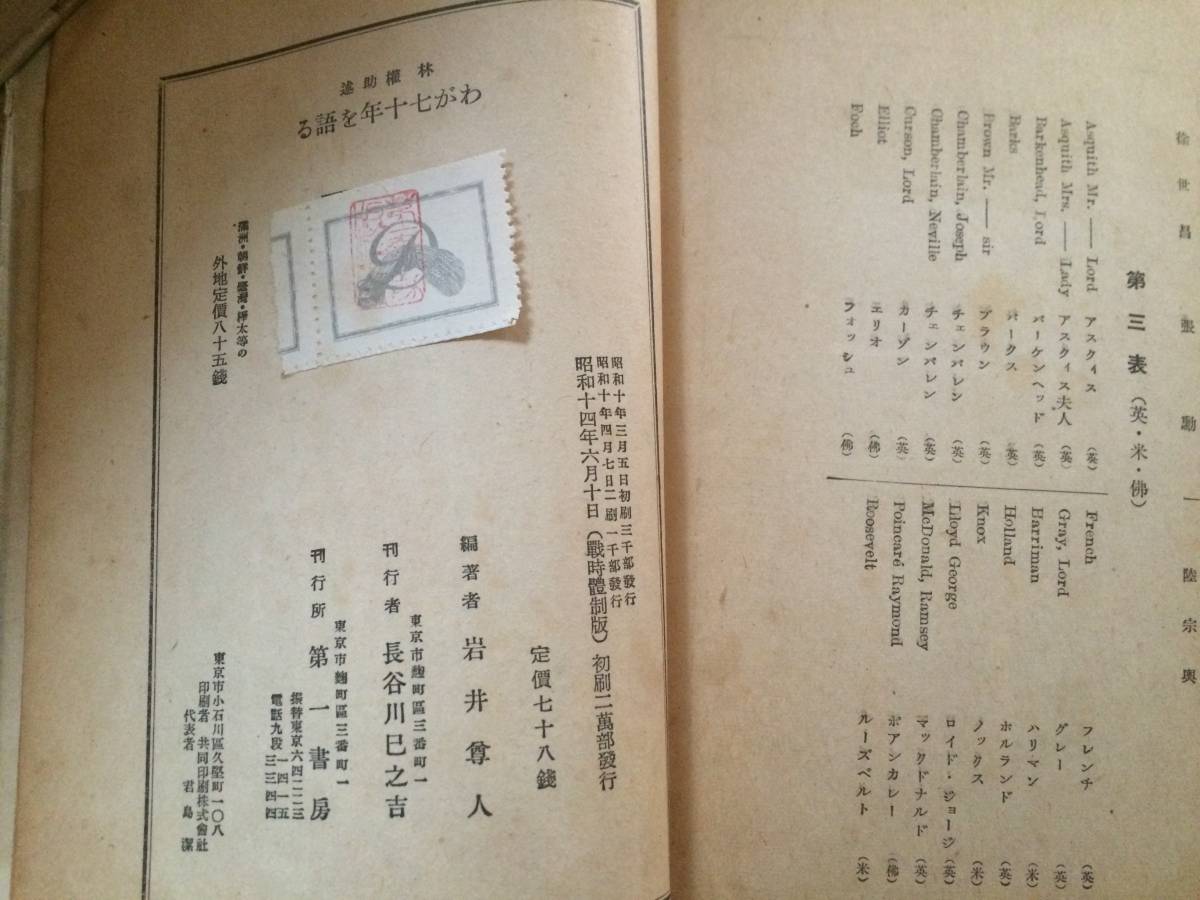 徐世昌　張勳　陸宗輿
第三表（英・米・佛）
Asquith Mr. —— Lord アスクィス（英）
Asquith Mrs. —— Lady アスクィス夫人（英）
Barkenhead, Lord バーケンヘッド（英）
Barks バークス（英）
Brown Mr. —— sir ブラウン（英）
Chamberlain, Joseph チェンバレン（英）
Chamberlain, Neville チェンバレン（英）
Curson, Lord カーゾン（英）
Elliot エリオ（佛）
Foch フォッシュ（佛）
French フレンチ（英）
Gray, Lord グレー（英）
Harriman ハリマン（米）
Holland ホルランド（英）
Knox ノックス（米）
Lloyd George ロイド・ジョージ（英）
McDonald, Ramsey マックドナルド（英）
Poincaré Raymond ポアンカレー（佛）
Roosevelt ルーズベルト（米）
林權助述
わが七十年を語る
昭和十年三月五日初刷三千部發行
昭和十年四月七日二刷一千部發行
昭和十四年六月十日（戰時體制版）初刷二萬部發行
定價七十八錢
編著者 岩井尊人
東京市麹町區三番町一
刊行者 長谷川巳之吉
東京市麹町區三番町一
刊行所 第一書房
振替東京六四二二三
電話九段
東京市小石川區久堅町一〇八
印刷者 共同印刷株式會社
代表者 君島潔
滿洲・朝鮮・臺灣・樺太等の
外地定價八十五錢